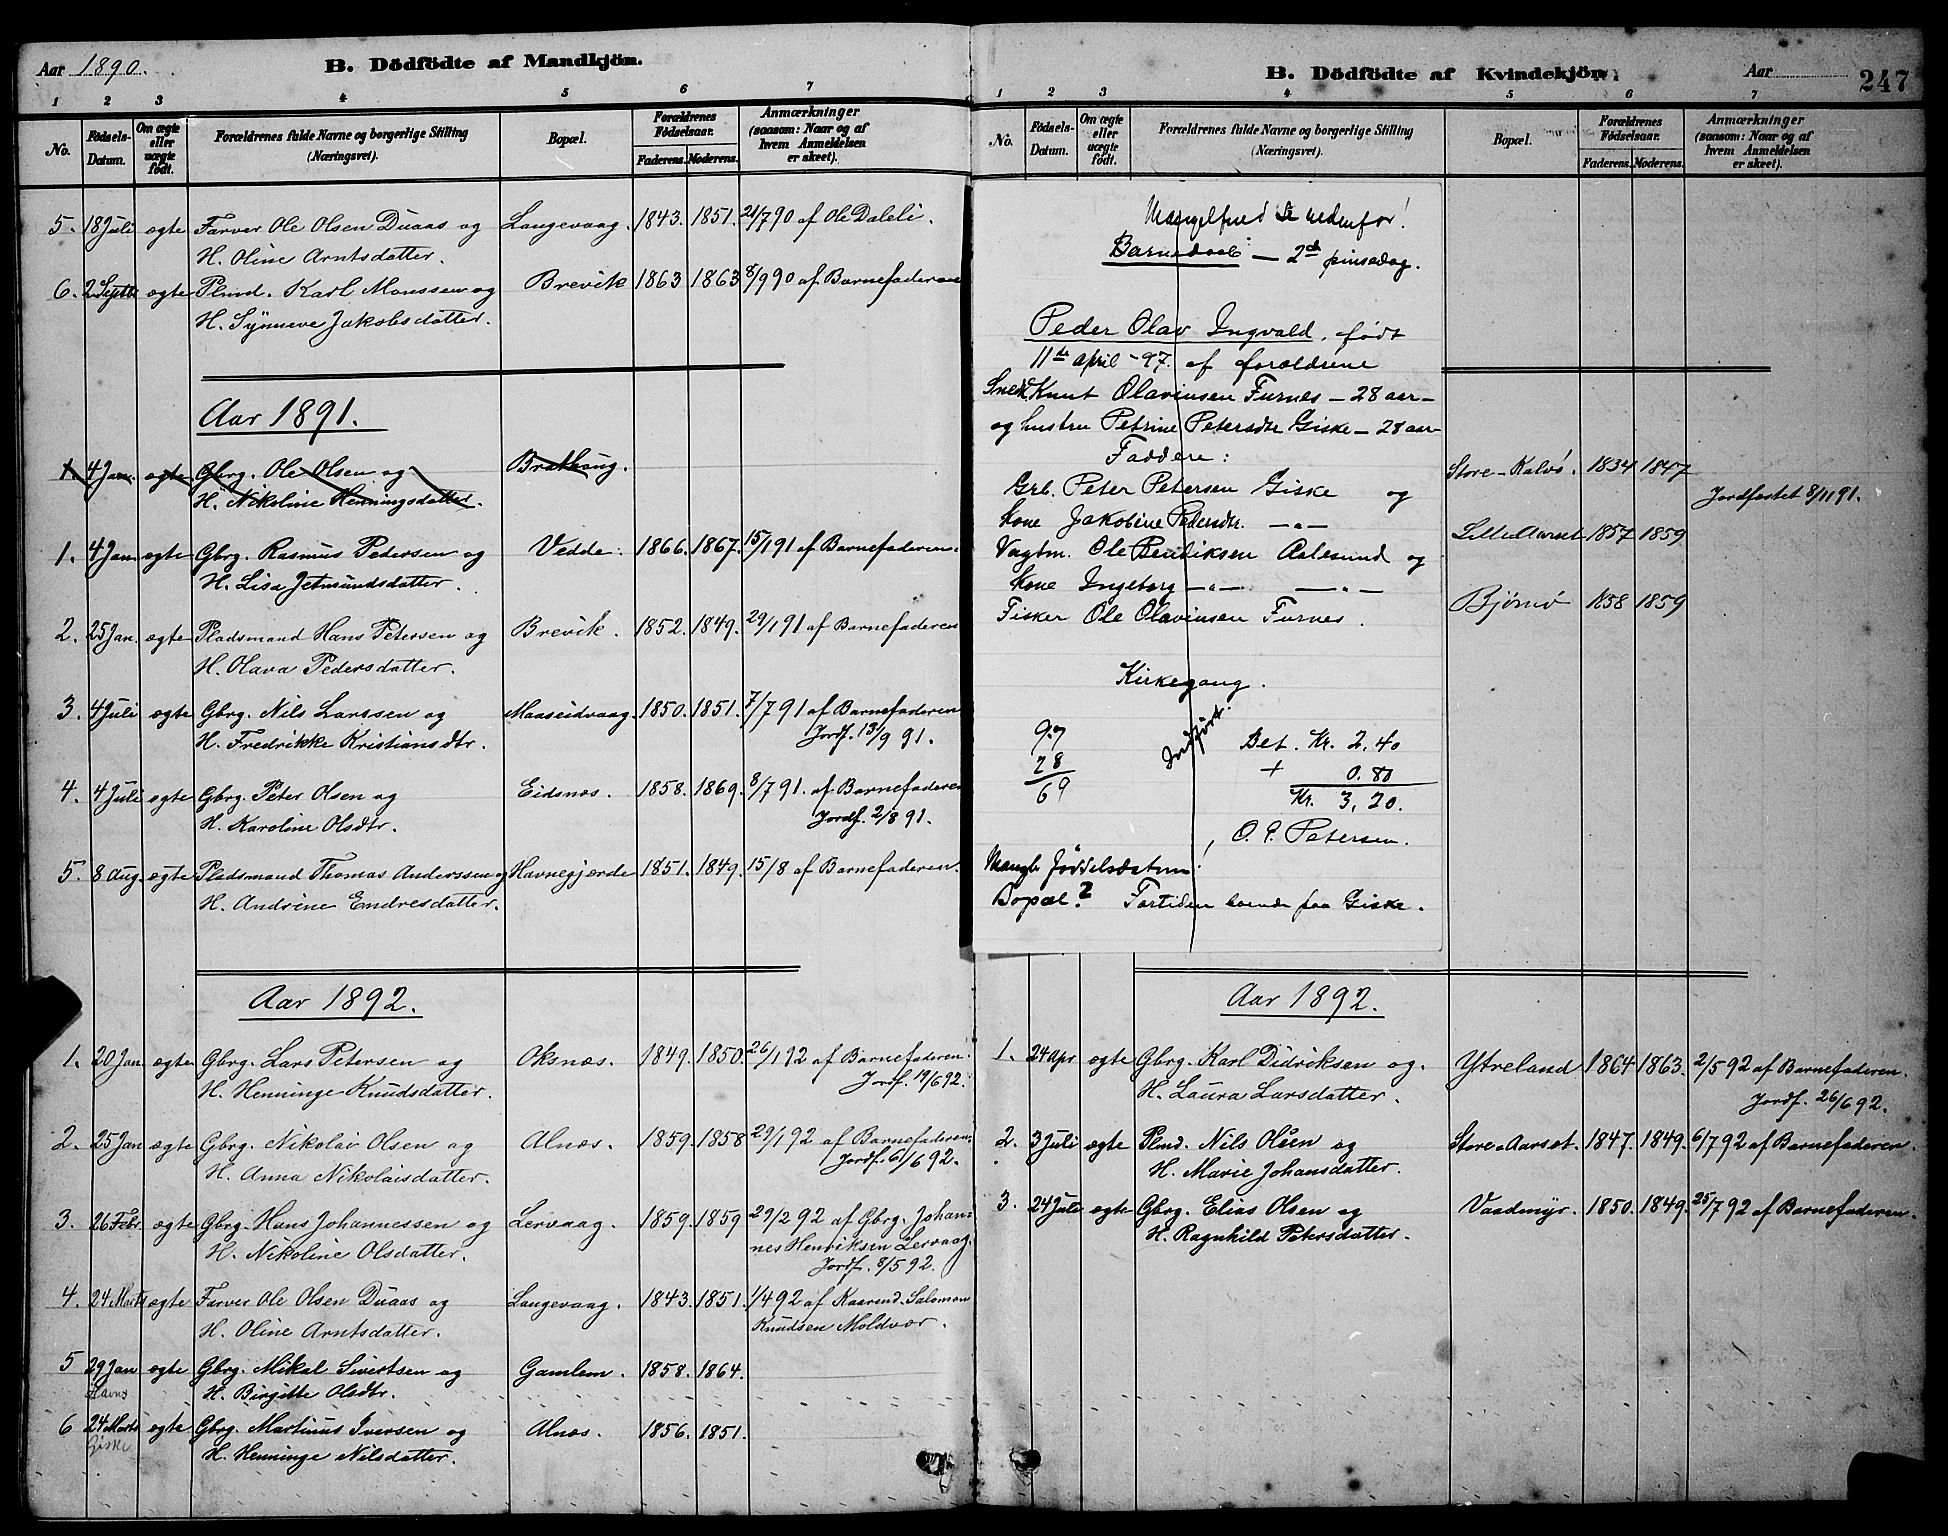 Aar 1890.
B. Dödfödte af Mandkjön.
1 2 3 4 5 6 7
No.
Födsels-Datum.
Om ægte eller uægte födt.
Forældrenes fulde Navne og borgerlige Stilling (Næringsvei).
Bopæl.
Forældrenes Födselsaar.
Faderens. Moderens.
Anmærkninger (saasom: Naar og af hvem Anmeldelsen er skeet).
5. 18 Juli ægte Farver Ole Olsen Duaas og Langevaag. 1843. 1851. 21/7 90 af Ole Daleli.
H. Oline Arntsdatter.
6. 2 Septb ægte Plmd. Karl Monssen og Brevik 1863 1863 8/9 90 af Barnefaderen
H. Synneve Jakobsdatter.
Aar 1891.
1 4 Jan. ægte Gbrg. Ole Olsen og Brathaug.
H. Nikoline Henningsdatter.
1. 4 Jan ægte Gbrg. Rasmus Pedersen og Vedde. 1866. 1867. 15/1 91 af Barnefaderen.
H. Lisa Jetmundsdatter.
2. 25 Jan. ægte Pladsmand Hans Petersen og Brevik. 1852. 1849. 29/1 91 af Barnefaderen
H. Olava Pedersdatter.
3. 4 Juli ægte Gbrg. Nils Larssen og Maaseidvaag. 1850. 1851. 7/7 91 af Barnefaderen
H. Fredrikke Kristiansdtr. Jordf. 13/9 91.
4. 4 Juli ægte Gbrg. Peter Olsen og Eidsnæs. 1858. 1869. 8/7 91. af Barnefaderen
H. Karoline Olsdtr. Jordf. 2/8 91.
5. 8 Aug. ægte Pladsmand Thomas Anderssen og Havnegjærde 1851. 1849. 15/8 af Barnefaderen.
H. Andrine Endresdatter.
Aar 1892.
1. 20 Jan ægte Gbrg. Lars Petersen og Oksnæs. 1849. 1850. 26/1 92 af Barnefaderen.
H. Henninge Knudsdatter. Jordf. 19/6 92.
2. 25 Jan ægte Gbrg. Nikolai Olsen og Alnæs. 1859. 1858 29/1 92 af Barnefaderen.
H. Anna Nikolaisdatter. Jordf. 6/6 92.
3. 26 Febr ægte Gbrg. Hans Johannessen og Lervaag. 1859. 1859 29/2 92 af Gbrg. Johan-
H. Nikoline Olsdatter. nes Henriksen Lervaag.
Jordf. 8/5 92.
4. 24 Marts ægte Farver Ole Olsen Duaas og Langevaag. 1843. 1851. 1/4 92 af Kaarmd. Salomon
H. Oline Arntsdatter. Knudsen Moldvær.
5 29 Jan ægte Gbrg. Mikal Sivertsen og Gamlem. 1858. 1864.
H. Birgitte Olsdtr.
6 24 Marts ægte Gbrg. Martinus Iversen og Alnæs. 1856. 1851.
Giske H. Henninge Nilsdatter.
B. Dödfödte af Kvindekjön.
Aar
247
1 2 3 4 5 6 7
No.
Födsels-Datum.
Om ægte eller uægte födt.
Forældrenes fulde Navne og borgerlige Stilling (Næringsvei).
Bopæl.
Forældrenes Födselsaar.
Faderens. Moderens.
Anmærkninger (saasom: Naar og af hvem Anmeldelsen er skeet).
Mangelfuld Se nedenfor!
Barnedaab – 2d pinsedag.
Peder Olav Ingvald, født
11te april -97. af forældrene
Snedk Knut Olavinsen Furnes – 28 aar –
og hustru Petrine Petersdtr Giske – 28 aar
Faddere:
Grb. Peter Petersen Giske og
kone Jakobine Pedersdtr. – " –
Vagtm. Ole Bendiksen Aalesund og
kone Ingeborg – " – – " –
Fisker Ole Olavinsen Furnes.
Kirkegang.
Indført.
97
28
69
Bet. Kr. 2,40
+ 0.80
Kr. 3,20.
O. P. Petersen.
Mangler fødselsdatum!
Bopæl? Fortiden boende paa Giske.
Store-Kalvö. 1834 1847
Jordfæstet 8/11 91.
Lille Aarset 1857 1859
Bjørnö 1858 1859
Aar 1892.
1. 24 Apr ægte Gbrg. Karl Didriksen og. Ytreland 1864 1863. 2/5 92 af Barnefaderen.
H. Laura Larsdatter. Jordf. 26/6 92.
2. 3 Juli ægte Plmd. Nils Olsen og Store-Aarset. 1847. 1849. 6/7 92 af Barnefaderen.
H. Marie Johansdatter.
3. 24 Juli ægte Gbrg. Elias Olsen og Vaadmyr. 1850. 1849. 25/7 92 af Barnefaderen.
H. Ragnhild Petersdatter.